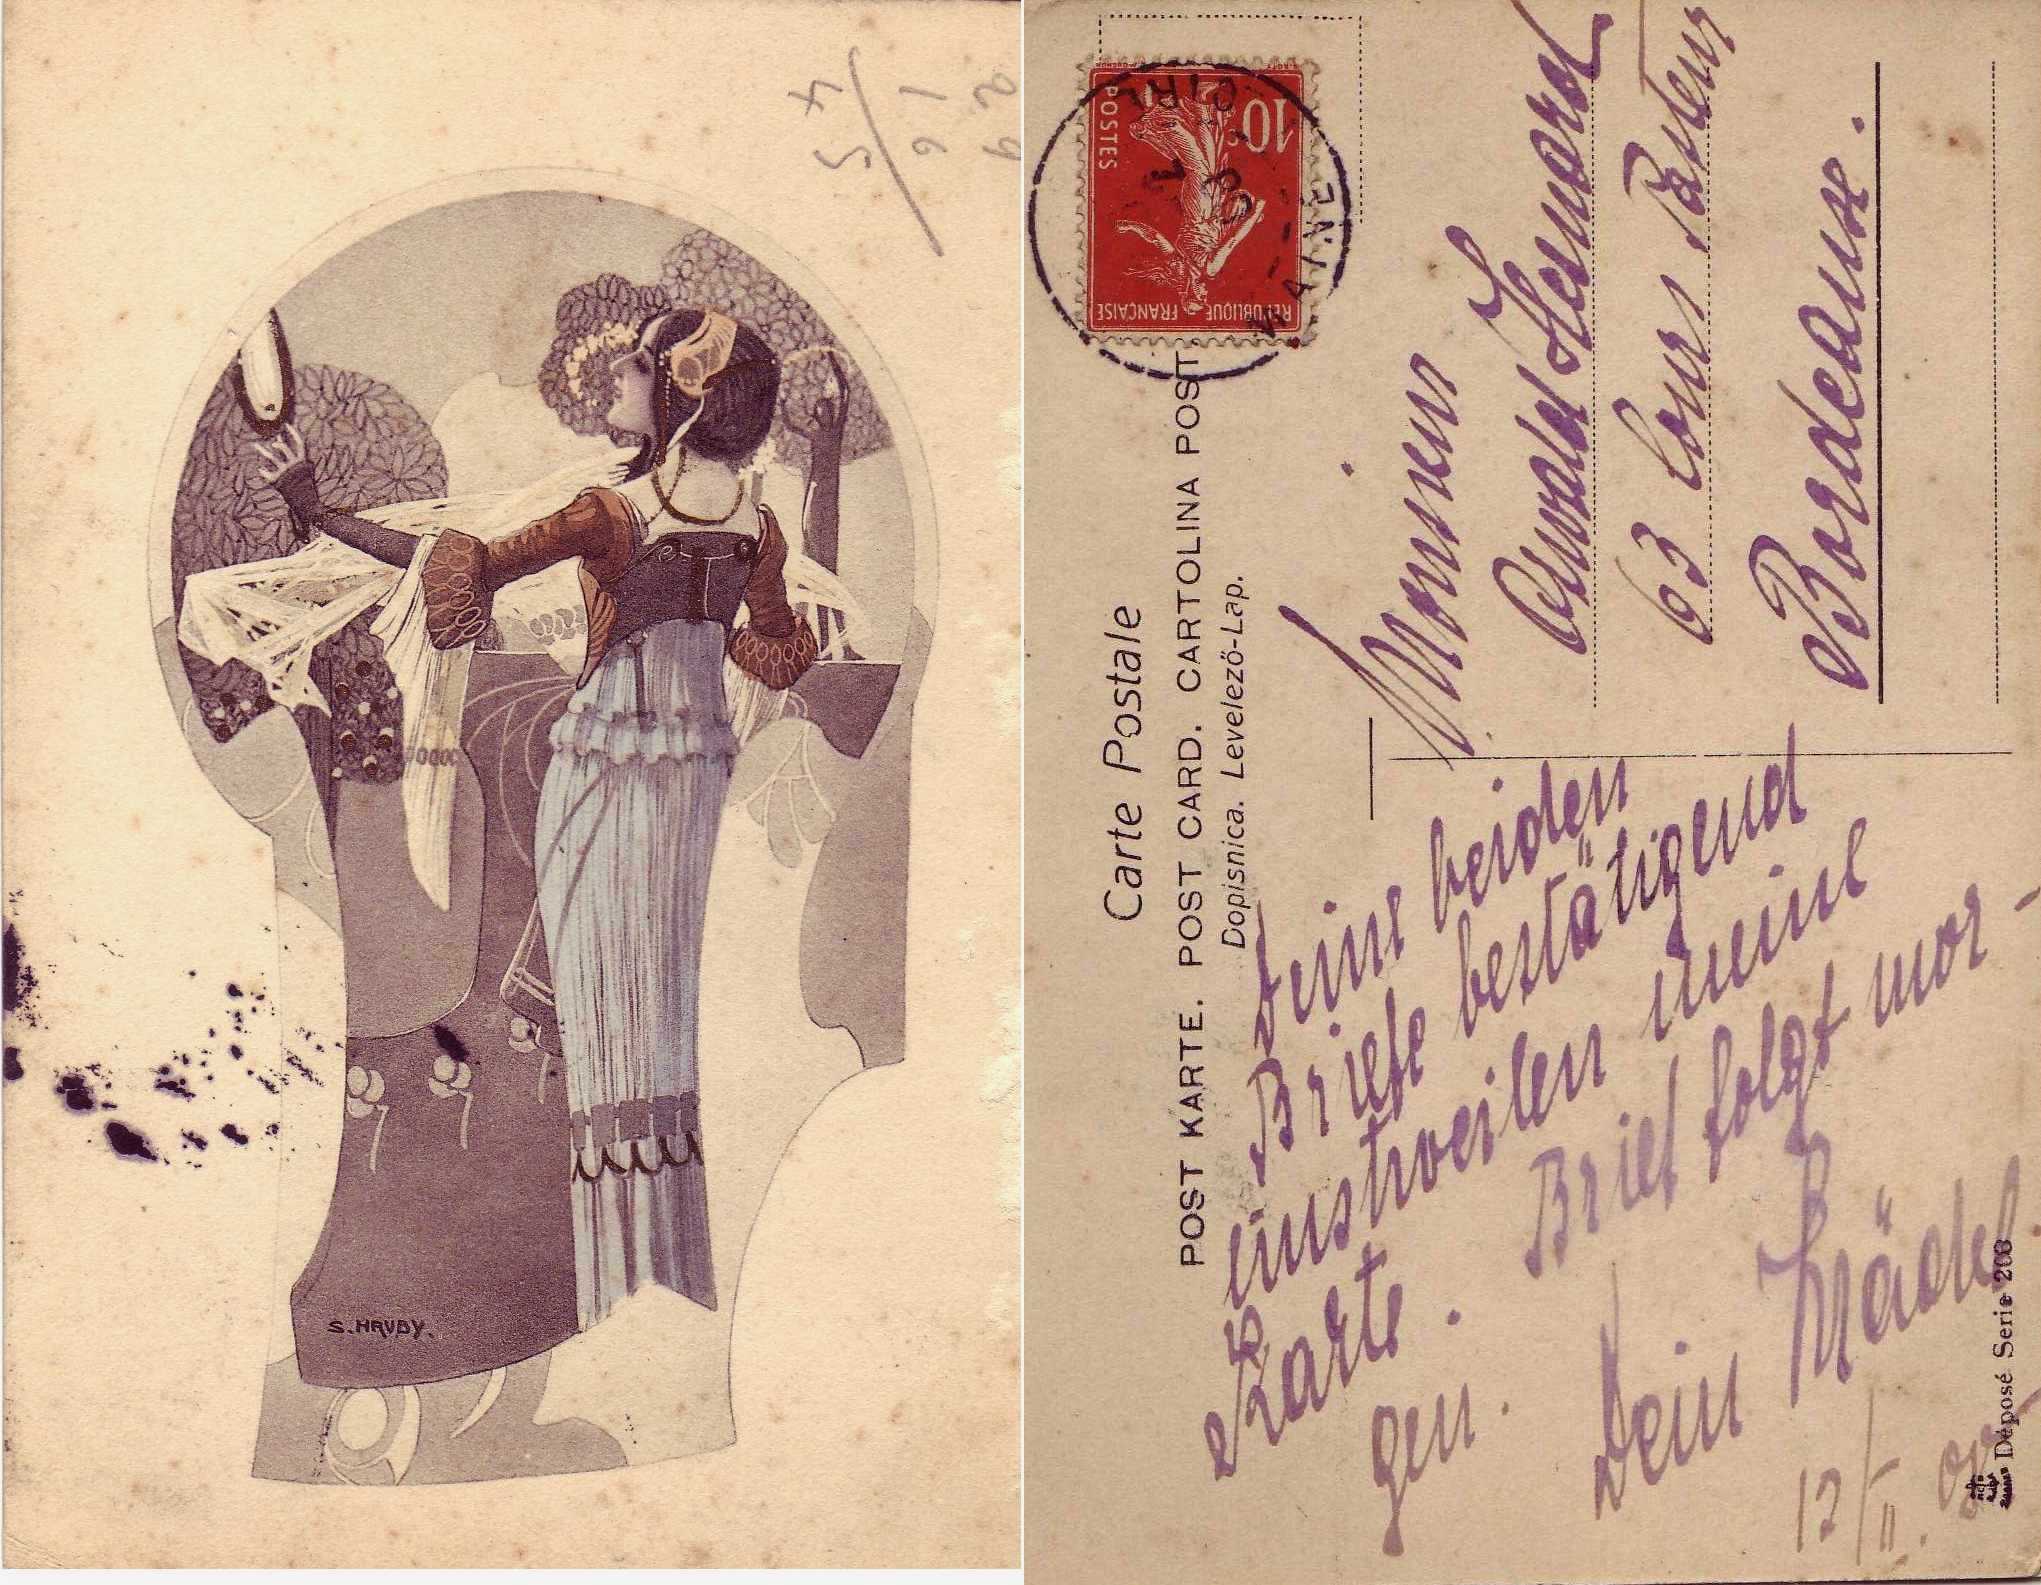 S. HRUBY.
2 9
1 6
4 5
10 c
POSTES
REPUBLIQUE FRANÇAISE
MAINE
LOIRE
Carte Postale
POST KARTE. POST CARD. CARTOLINA POST
Dopisnica. Levelező-Lap.
Monsieur
63 Cours Pasteur
Bordeaux.
Deine beiden
Briefe bestätigend
einstweilen meine
Karte. Brief folgt mor-
gen.
Dein Mädel
12/II.
Déposé Serie 206